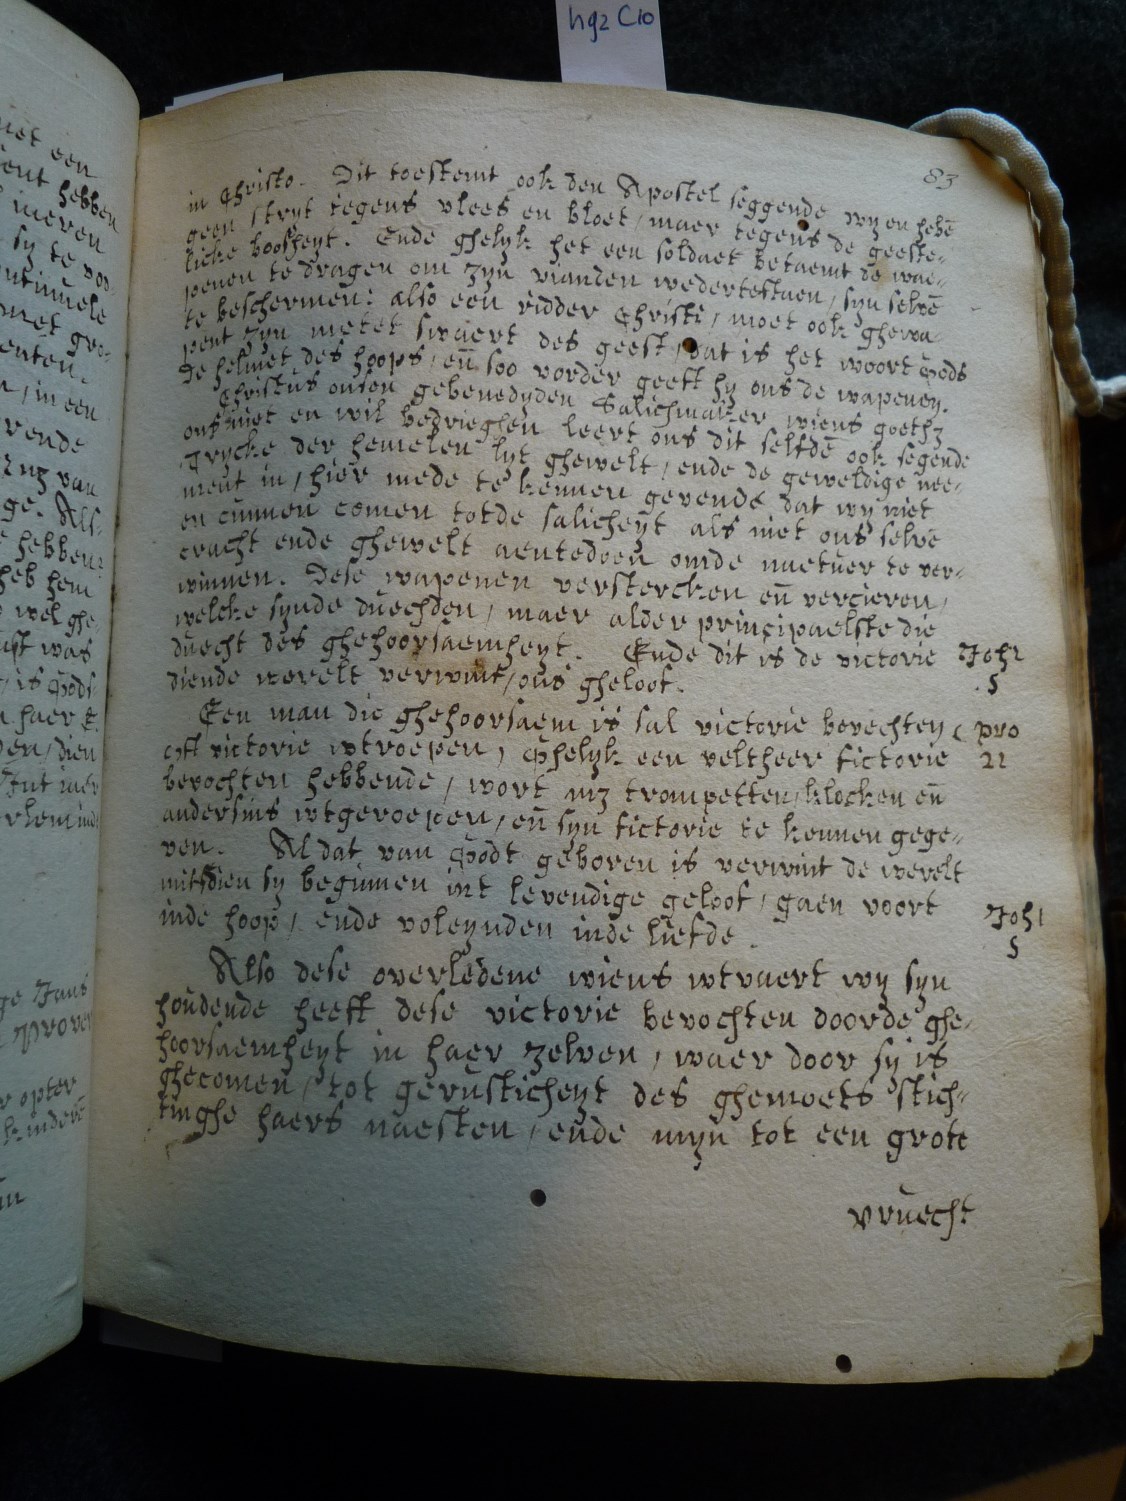 hg2 C10
83
in Christo. Dit toestemt ook den Apostel seggende wy en hebē
geen stryt tegens vlees en bloet, maer tegens de geeste-
licke boosheyt. Ende ghelyk het een soldaet betaemt de wae-
penen te dragen om zyn vianden wederstaen, syn selvē
te beschermen: also een ridder Christi, moet ook ghewa-
pent zyn metet swaert des geest, dat is het woort Gods
De helmet des hoops, en̄ soo vorder geeft hy ons de wapenen.
Christus onsen gebenedyden Salichmaker wiens goeth3
ons niet en wil bedrieghen leert ons dit selfdē ook segende
trycke der hemelen lyt ghewelt, ende de geweldige nee-
ment in, hier mede te kennen gevende dat wy niet
en cunnen comen totde salicheyt als met ons selvē
cracht ende ghewelt aentedoen omde natuer te ver-
winnen. Dese wapenen verstercken en̄ vercieren,
welcke synde duechden, maer alder principaelste die
duecht des ghehoorsaemheyt. Ende dit is de victorie
diende werelt verwint, ons gheloof.
Joh1
5
Een man die ghehoorsaem is sal victorie bevechten
oft victorie wtroepen, Ghelyk een veltheer fictorie
bevochten hebbende, wort m3 trompetten, klocken en̄
andersins wtgeroepen, en̄ syn fictorie te kennen gege-
ven. Al dat van Godt geboren is verwint de werelt
mitsdien sy beginnen int levendige geloof, gaen voort
inde hoop, ende voleynden inde liefde.
pro
21
Joh1
5
Also dese overledene wiens wtvaert wy syn
houdende heeft dese victorie bevochten doorde ghe-
hoorsaemheyt in haer zelven, waer door sy is
ghecomen, tot gerusticheyt des ghemoets stich-
tinghe haers naesten, ende myn tot een grote
vruecht